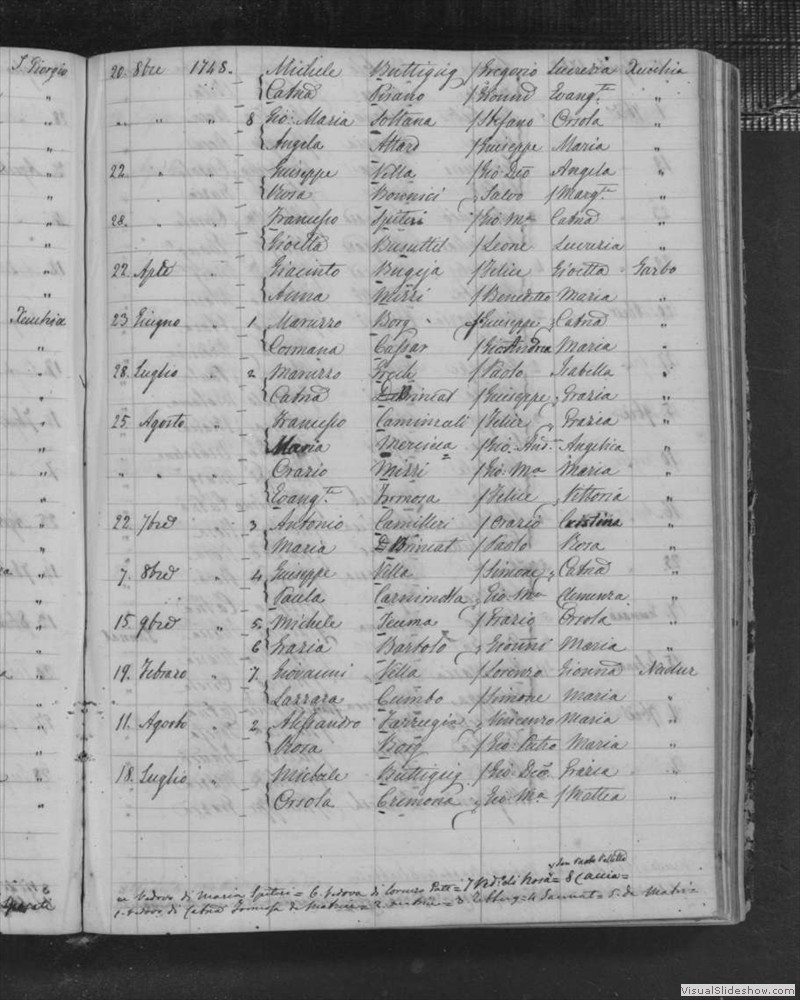 S. Giorgio
20. 8bre 1748. Michele Buttigig /Gregorio Lucrezia Xeuchia
Catnā Pisano /Gionnō Evangta „
„ „ „ 8 Gio: Maria Soltana /Stefano Orsola „
Angela Attard /Giuseppe Maria „
22. „ „ Giuseppe Vella /Gio Dio Angela „
Rosa Bonnici /Salvo /Margta „
28. „ „ Francesco Spiteri /Gio Ma Catnā „
Gioetta Busuttil /Leone Lucrezia „
22. Aple „ Giacinto Bugeja /Felice Gioetta Garbo
Anna Mizzi /Benedetto Maria „
Xeuchia 23. Giugno „ 1. Marizzo Borg /Giuseppe Catnā „
Cosmana Caspar /Gio Andrea Maria „
28. Luglio „ 2 Marizzo Grech /Paolo Isabella „
Catnā DeBrincat /Giuseppe Grazia „
25. Agosto Francesco /Felice Grazia „
Maria Mercieca /Gio. And. Angelica „
„ „ „ Orazio Mizzi /Gio: Ma Maria „
Evangta Formosa /Felice Vittoria „
22. 7bre „ 3 Antonio Camilleri /Orazio Cristina „
Maria DBrincat /Paolo Rosa „
7. 8bre „ 4 Giuseppe Vella /Simone Catnā „
Paula /Gio Ma Clemenza „
15. 9bre „ 5. Michele Teuma /Grazio Orsola „
6 Grazia Bartolo Maria „
19. Febraro „ 7. Giovanni Vella /Lorenzo Gionnā Nadur
Lazzara Cumbo /Simone Maria „
11. Agosto „ 2. Alessandro Farrugia Vincenzo Maria „
Rosa Borg /Gio: Pietro Maria „
18. Luglio „ Michele Buttigig /Gio Dio Grazia „
Orsola Cremona /Gio: Ma /Mattea „
Vedovo di Maria Spiteri = 6. Vedova di Lorenzo = 7 Ved. di Rosa = 8
1. Vedovo di Catnā Formosa
VisualSlideshow.com